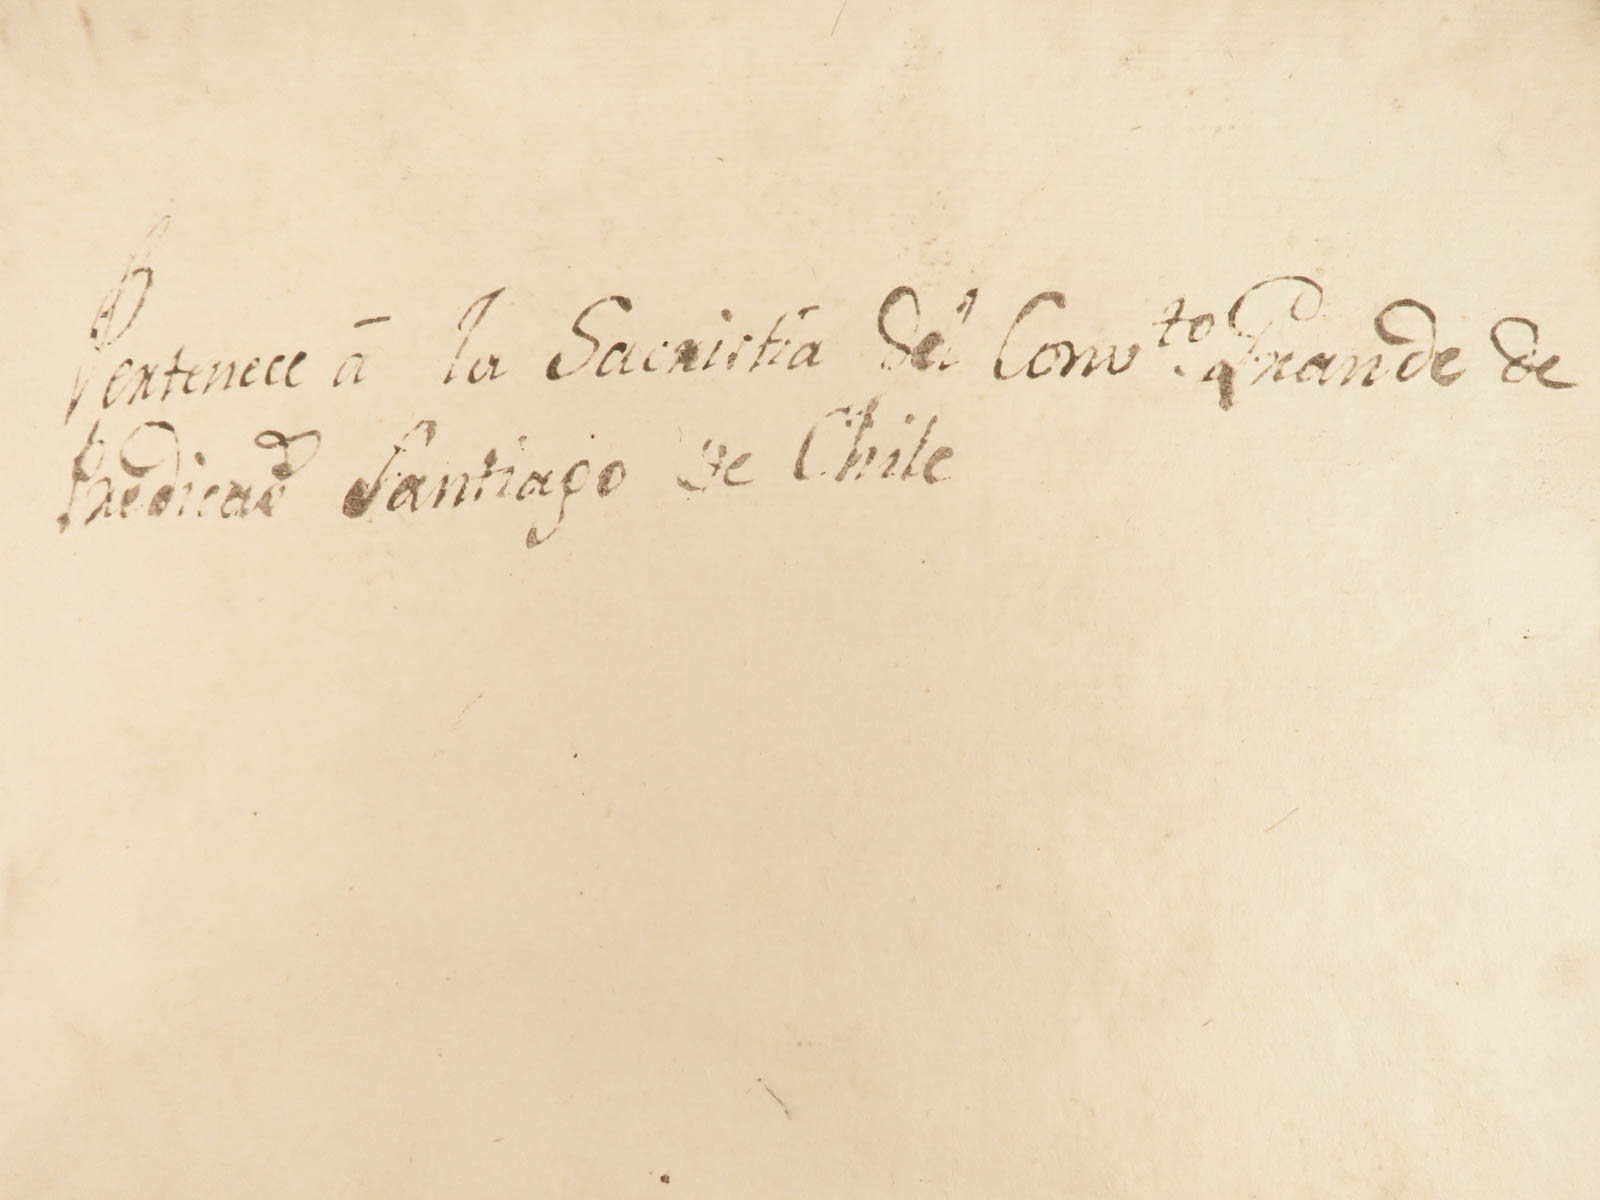 Pertenece â la Sacristia del Conv.to Grande de
Predicad.s Santiago de Chile